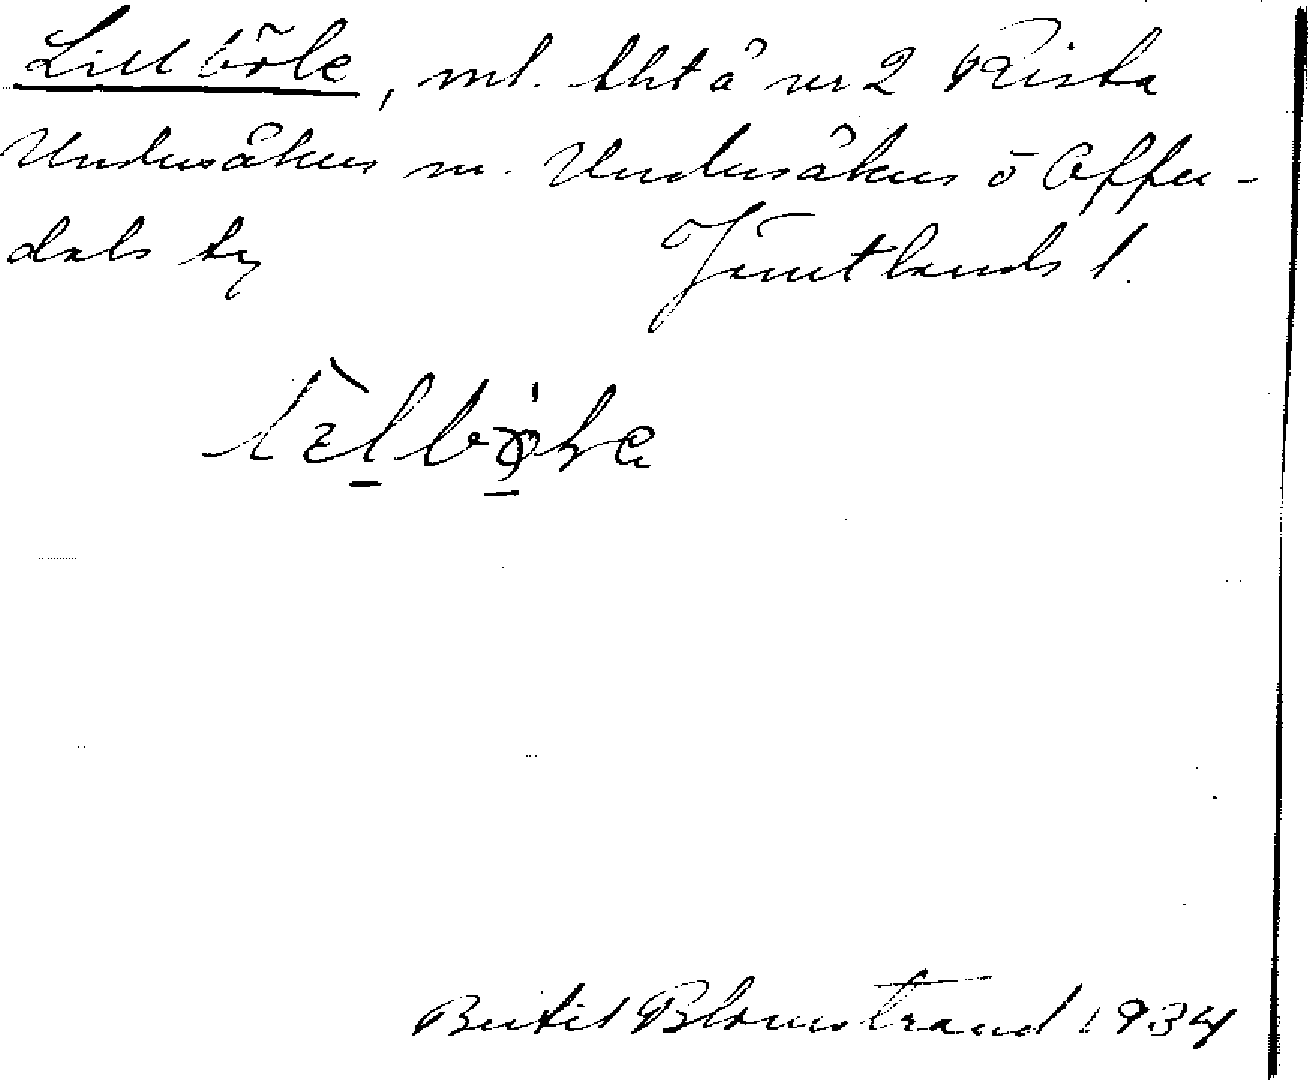 Lillböle, ml. tht å nr 2 Rista
Undersåkers sn. Undersåkers o Offer-
dals tg Jämtlands l.
Bertil Blomstrand 1934